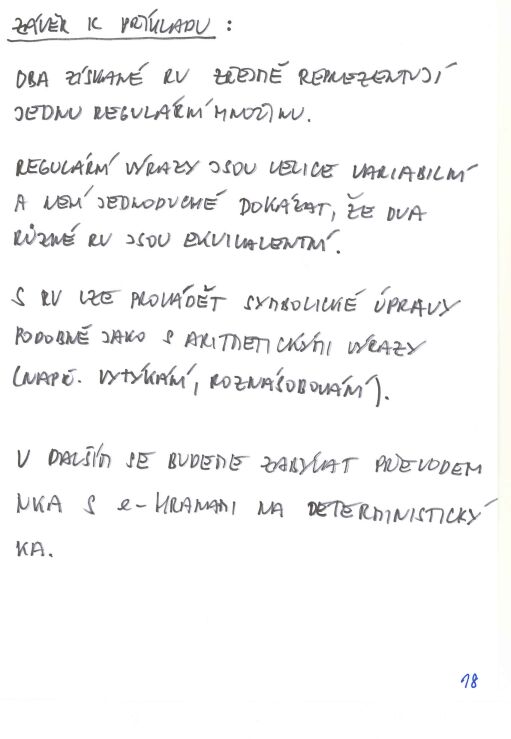 ZÁVĚR K PŘÍKLADU :
OBA ZÍSKANÉ RV ZŘEJMĚ REPREZENTUJÍ
JEDNU REGULÁRNÍ MNOŽINU.
REGULÁRNÍ VÝRAZY JSOU VELICE VARIABILNÍ
A NENÍ JEDNODUCHÉ DOKÁZAT, ŽE DVA
RŮZNÉ RV JSOU EKVIVALENTNÍ.
S RV LZE PROVÁDĚT SYMBOLICKÉ ÚPRAVY
PODOBNĚ JAKO S ARITMETICKÝMI VÝRAZY
(NAPŘ. VYTÝKÁNÍ, ROZNÁSOBOVÁNÍ).
V DALŠÍM SE BUDEME ZABÝVAT PŘEVODEM
NKA S e-HRANAMI NA DETERMINISTICKÝ
KA.
18